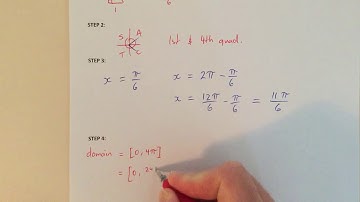 1 6
STEP 2:
S A
T C
1st & 4th quad.
STEP 3:
x = π/6 x = 2π - π/6
x = 12π/6 - π/6 = 11π/6
STEP 4:
domain = [0, 4π]
= [0, 24